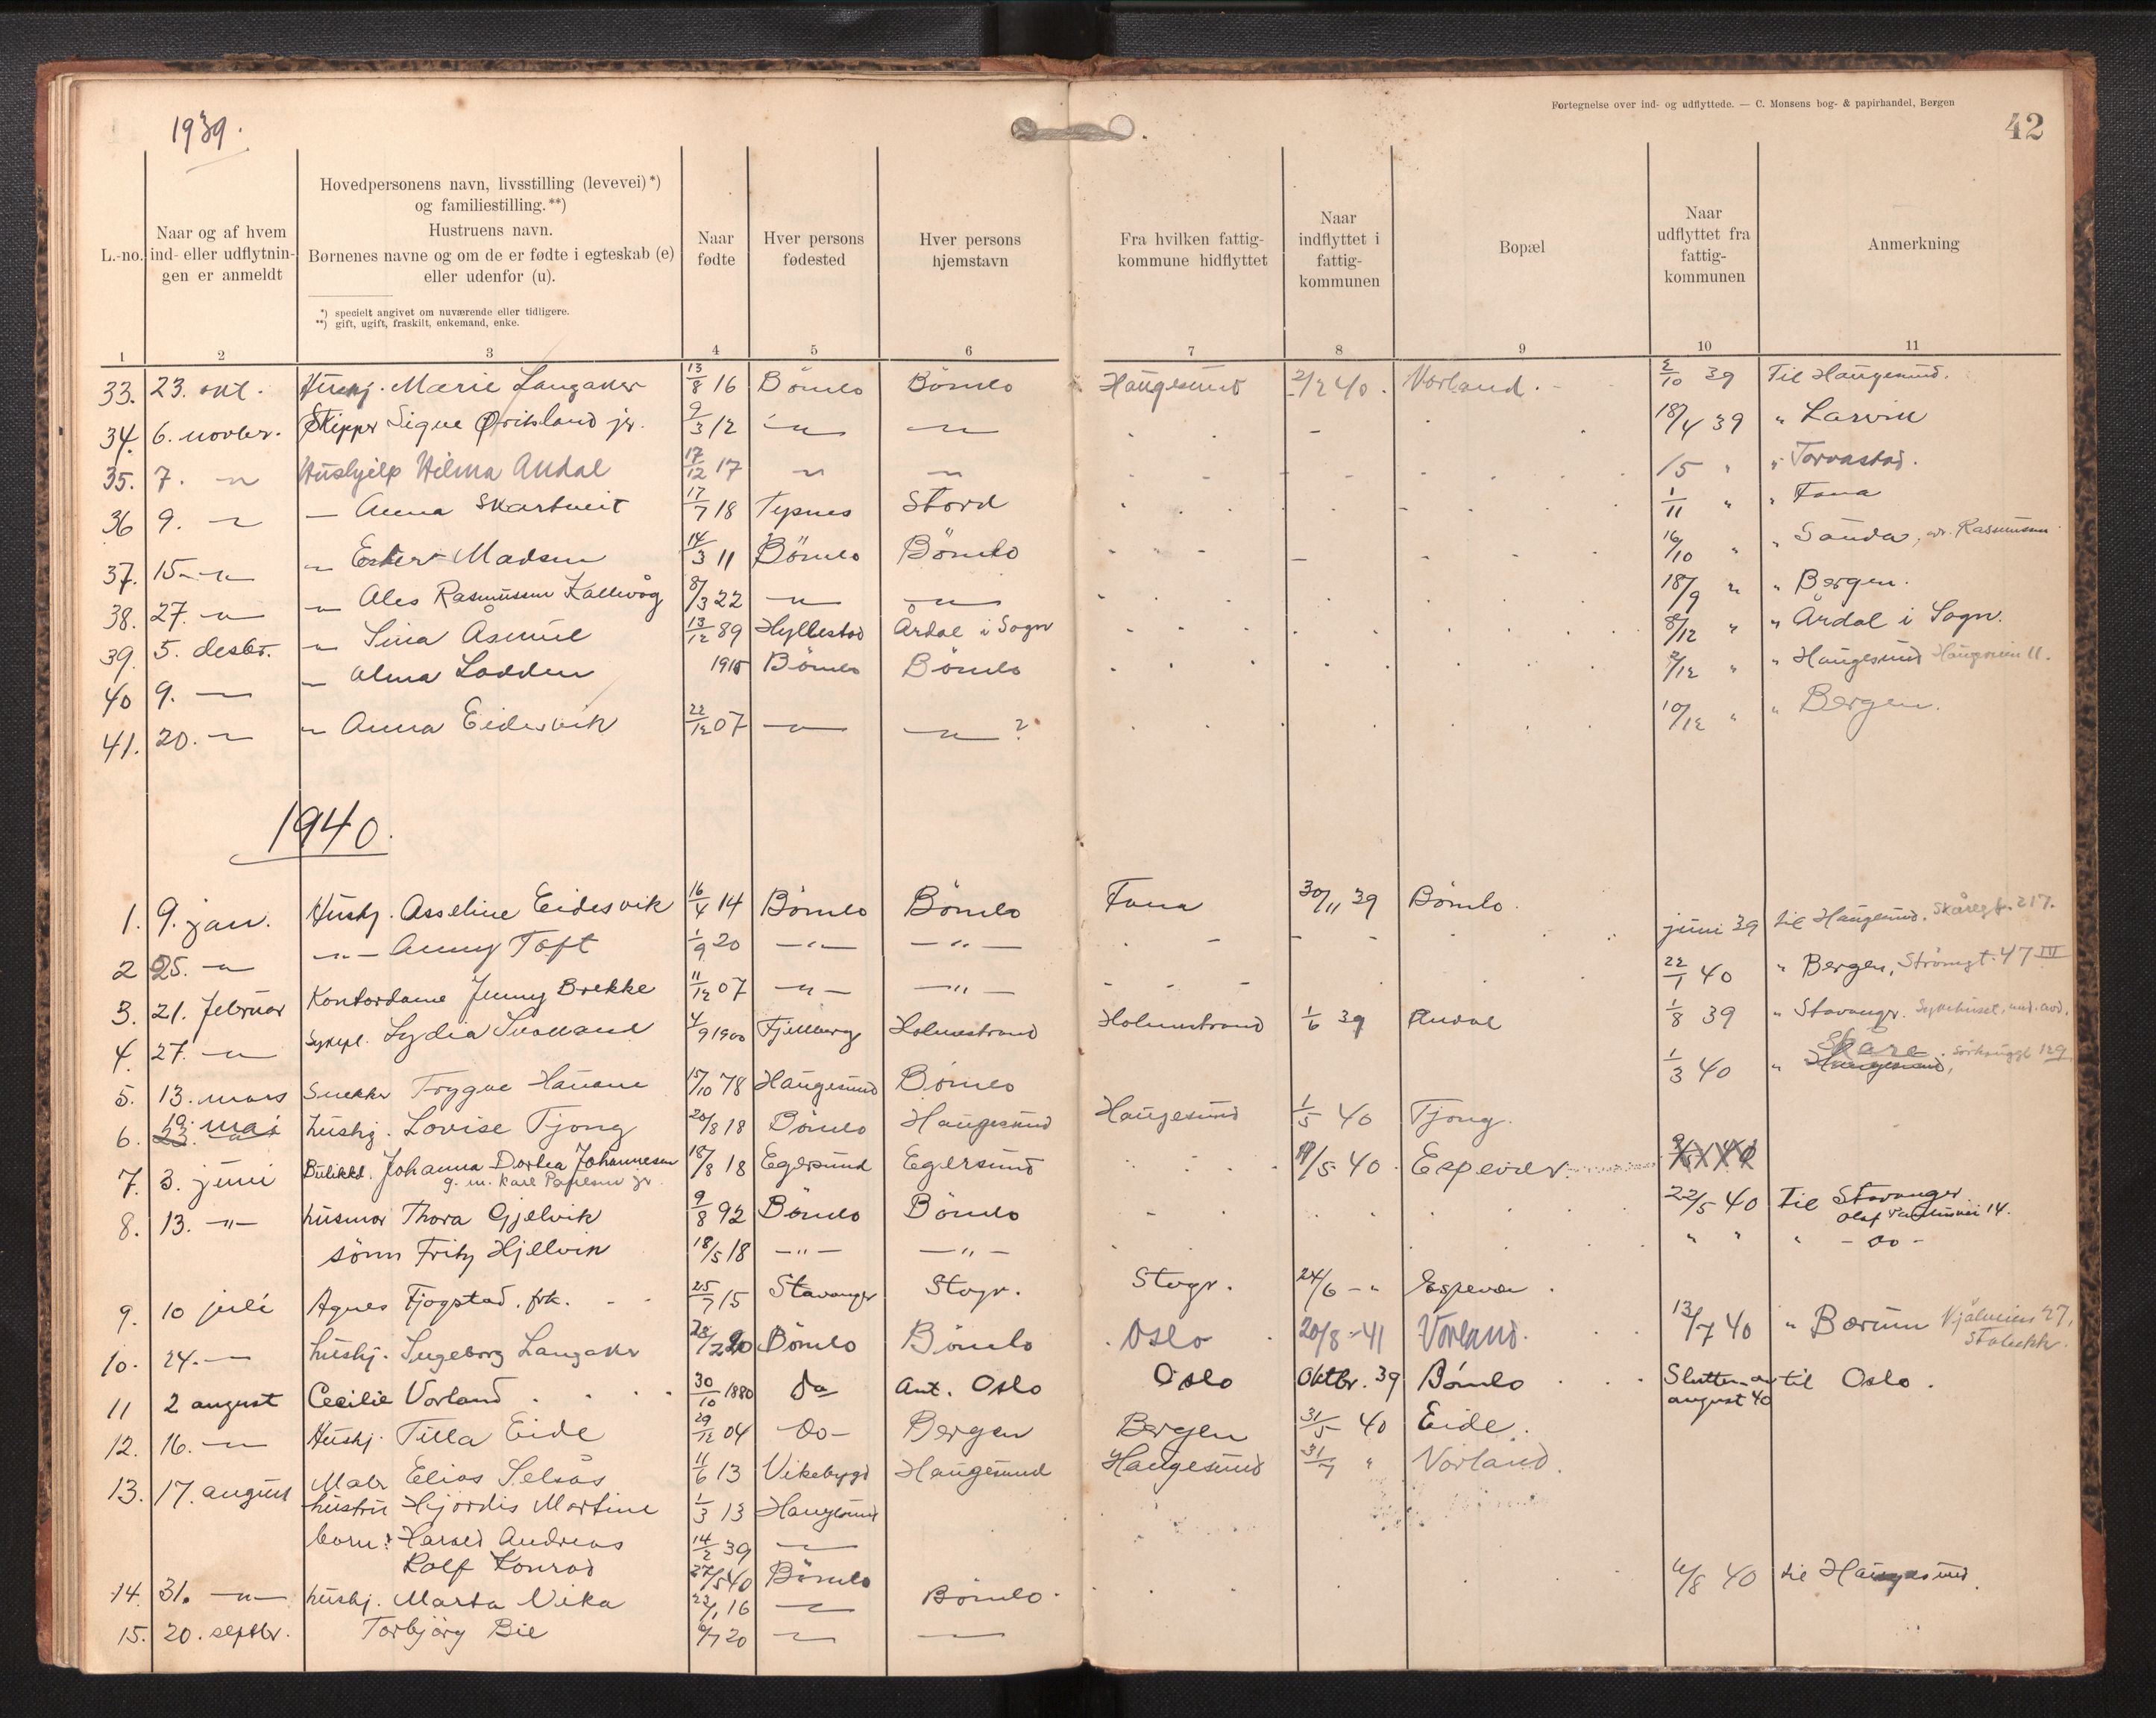 1939.
Fortegnelse over ind- og udflyttede. — C. Monsens bog- & papirhandel, Bergen
42
L.-no.
Naar og af hvem
ind- eller udflytnin-
gen er anmeldt
Hovedpersonens navn, livsstilling (levevei)*)
og familiestilling.**)
Hustruens navn.
Børnenes navne og om de er fødte i egteskab (e)
eller udenfor (u).
*) specielt angivet om nuværende eller tidligere.
**) gift, ugift, fraskilt, enkemand, enke.
Naar
fødte
Hver persons
fødested
Hver persons
hjemstavn
Fra hvilken fattig-
kommune hidflyttet
Naar
indflyttet i
fattig-
kommunen
Bopæl
Naar
udflyttet fra
fattig-
kommunen
Anmerkning
1 2 3 4 5 6 7 8 9 10 11
33. 23. okt. Hushj. Marie Langaker 13/8 16 Bömlo Bömlo Haugesund 2/2 40. Vorland. 2/10 39 Til Haugesund.
34. 6. novbr. Skipper Sigve jr. 9/3 12 -"- -"- 18/4 39 " Larvik
35. 7. -"- Hushjelp Hilma Andal 17/12 17 -"- -"- 15 " " Torvastad.
36 9. -"- — Anna Skartveit 17/7 18 Tysnes Stord 1/11 " " Fana
37. 15 -"- -"- Ester Madsen 14/3 11 Bömlo Bömlo 16/10 " " Sauda, Rasmussen
38. 27. -"- -"- Ales Rasmussen Kallevåg 8/3 22 -"- -"- 18/9 " " Bergen.
39. 5. desbr. -"- Sina Åsmul 13/12 89 Hyllestad Årdal i Sogn 8/12 " " Årdal i Sogn.
40 9. -"- -"- Alma Lodden 1915 Bömlo Bömlo 2/12 " " Haugesund 11.
41. 20. -"- -"- Anna Eidesvik 22/12 07 -"- -"- ? 10/12 " " Bergen.
1940.
1. 9. jan. Hushj. Asseline Eidesvik 16/4 14 Bömlo Bömlo Fana 30/11 39 Bömlo. juni 39 til Haugesund. Skåregt. 217.
2 25. -"- -"- Anny Toft 1/9 20 -"- -"- 22/1 40 " Bergen, Strömgt. 47 IV
3. 21. februar Kontordame Jenny Brekke 11/12 07 -"- -"- 1/8 39 " Stavanger. Sykehuset, med. avd.
4. 27. -"- Sykepl. Lydia 4/9 1900 Fjelberg Holmestrand Holmestrand 1/6 39 Andal
5. 13. mars Snekker Trygve Hauane 15/10 78 Haugesund Bömlo 1/3 40 " Haugesund, Skåre. 129
6. 19. mai hushj. Lovise Tjong 20/8 18 Bömlo Haugesund Haugesund 1/5 40 Tjong.
7. 3. juni Johanna Dorthea Johannesen 18/8 18 Egersund Egersund 19/5 40. Espevær.
g. m. Karl Paulsen jr.
8. 13. -"- husmor Thora Gjelvik 9/8 92 Bömlo Bömlo 22/5 40 Til Stavanger
Olaf 14.
sönn Fritz Hjellvik 18/5 18 -"- -"- " " " - do -
9. 10 juli Agnes Fjogstad. frk. 25/7 15 Stavanger Stvgr. Stvgr. 24/6 -" Espevær.
10. 24. -"- hushj. Ingeborg Langaker 20 Bömlo Bömlo Oslo 20/8 -41 Vorland. 13/7 40 " Bærum 27,
Stabekk.
11 2 august Cecilie Vorland 30/10 1880 do Ant. Oslo Oslo Oktbr. 39 Bömlo Slutten av til Oslo.
august 40
12. 16. -"- Hushj. Tilla Eide 29/12 04 -do- Bergen Bergen 31/5 40 Eide.
13. 17. august Maler Elias Selsås 11/6 13 Vikebygd Haugesund Haugesund 31/7 " Vorland.
hustru Hjördis Martine 1/3 13 Haugesund
born: Harald Andreas 14/2 39 -"-
Rolf Konrad 27/5 40 Bömlo
14. 31. -"- hushj. Marta Vika 16 -"- Bömlo. 6/8 40 til Haugesund.
15. 20. septbr. Torbjörg Bie 6/7 20 -"- -"-